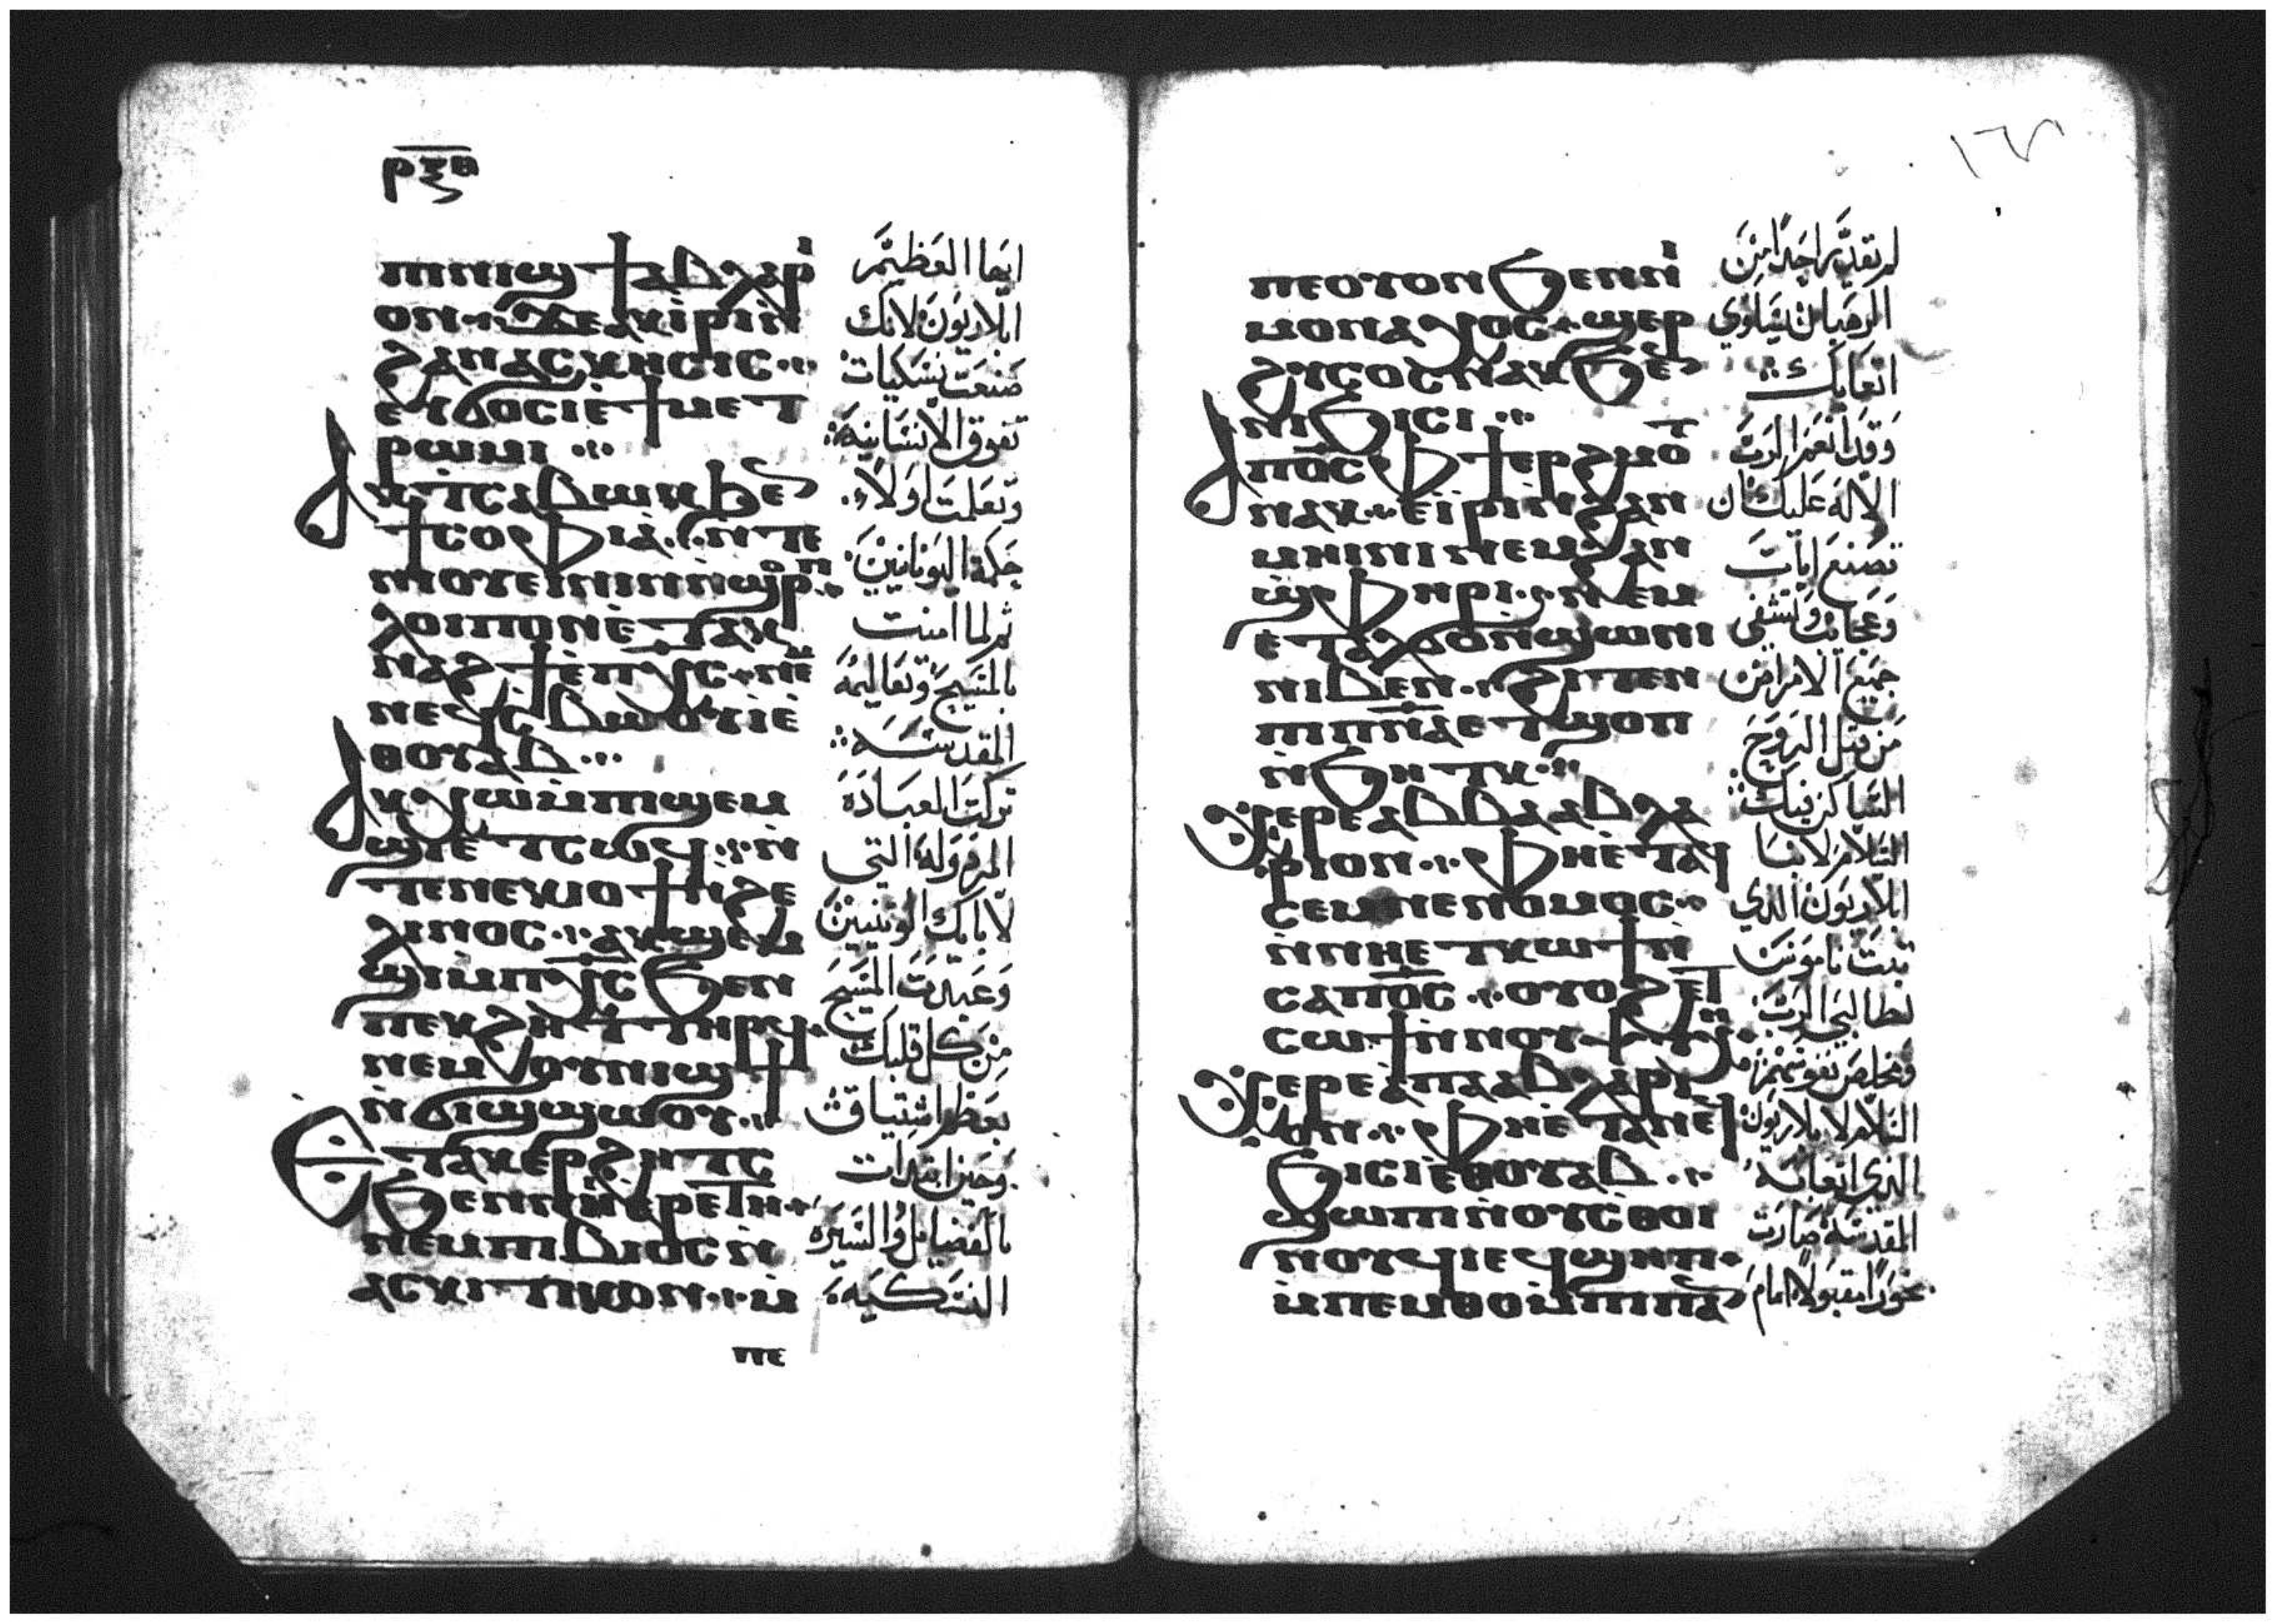 ⲣⲝⲑ
ⲡⲓⲛⲓϣϯ ⲁⲃ ⲗⲁⲣⲓ
ⲟⲛ ϫⲉ ⲁⲕⲓⲣⲓ ⲛ
ϩⲁⲛⲁⲥⲕⲏⲥⲓⲥ
ⲉⲩϭⲟⲥⲓ ⲉϯⲙⲉⲧ
ⲣⲱⲙⲓ
ⲁⲕⲧⲥⲁⲃⲱⲕ ϧⲉ
ϯⲥⲟⲫⲓⲁ ⲛⲧⲉ
ⲛⲓⲟⲩⲉⲓⲛⲓⲛ ⲛϣⲟⲣⲡ
ⲗⲟⲓⲡⲟⲛ ⲉⲧⲁⲕ
ⲛⲁϩϯ ⲉⲡⲭⲥ ⲛⲉⲙ
ⲛⲉϥⲥⲃⲱⲟⲩⲓ ⲉ
ⲑⲟⲩⲁⲃ
ⲁⲕⲭⲱ ⲙⲡϣⲉⲙ
ϣⲓ ⲉⲧⲥⲱϥ ⲛ
ⲧⲉ ⲛⲉⲕⲓⲟϯ ⲛϩⲉ
ⲗⲗⲓⲛⲟⲥ ⲁⲕϣⲉⲙ
ϣⲓ ⲙⲡⲭⲥ ϧⲉⲛ
ⲡⲉⲕϩⲏⲧ ⲧⲏⲣϥ
ⲛⲉⲙ ⲟⲩⲛⲓϣϯ
ⲛϭⲓϣϣⲱⲟⲩ
ⲉⲧⲁⲕⲉⲣϩⲏⲧⲥ
ϧⲉⲛ ⲛⲓⲁⲣⲉⲧⲏ
ⲛⲉⲙ ⲡⲓⲃⲓⲟⲥ ⲛ
ⲁⲥⲕⲓⲧⲓⲕⲟⲛ ⲙ
ⲡⲉ
ايها العظيم
ابلاريون لانك
صنعت نسكيات
تفوق الانسانيه
وتعلمت اولاً
حكمة اليونانيين
ثم لما امنت
بالمسيح وتعاليمه
المقدسه
تركت العباده
المرذوله التي
لابايك الوثنيين
وعبدت المسيح
من كل قلبك
بعظم اشتياق
وحين ابتدات
بالفضايل والسيره
النسكيه
ⲡⲉ ⲟⲩⲟⲛ ϧⲉⲛ ⲛⲓ
ⲙⲟⲛⲁⲭⲟⲥ ϣⲉⲣ
ϩⲩⲥⲟⲥ ⲛⲁⲕ ϧⲉ
ⲛⲓϧⲓⲥⲓ
ⲁ ⲡⲟⲥ ⲫϯ ⲉⲣϩⲙⲟⲧ
ⲛⲁⲕ ⲉⲓⲣⲓ ⲛϩⲁⲛ
ⲙⲏⲓⲛⲓ ⲛⲉⲙ ϩⲁⲛ
ϣⲫⲏⲣⲓ ⲛⲉⲙ
ⲉⲧⲁⲗϭⲟ ⲛϣⲱⲛⲓ
ⲛⲓⲃⲉⲛ ϩⲓⲧⲉⲛ
ⲡⲓⲡⲛⲁ ⲉⲧϣⲟⲡ
ⲛϧⲏⲧⲕ
ⲭⲉⲣⲉ ⲁⲃⲃⲁ ⲁⲃⲗⲁ
ⲣⲓⲟⲛ ⲫⲏ ⲉⲧⲁϥ
ⲥⲉⲙⲛⲉ ⲛⲟⲙⲟⲥ
ⲛⲛⲏ ⲉⲧⲕⲱϯ ⲛ
ⲥⲁ ⲡⲟⲥ ⲟⲩⲟϩ ⲉϥ
ⲥⲱϯ ⲛⲛⲟⲩⲯⲩⲭⲏ
ⲭⲉⲣⲉ ⲁⲡⲁ ⲁⲃⲗⲁⲣⲓ
ⲟⲛ ⲫⲏ ⲉⲧⲁ ⲛⲉϥ
ϧⲓⲥⲓ ⲉⲑⲟⲩⲁⲃ
ϣⲱⲡⲓ ⲛⲟⲩⲥⲑⲟⲓ
ⲛⲟⲩϥⲓ ⲉϥϣⲏⲡ
ⲙⲡⲉⲙⲑⲟ ⲙⲡⲓⲡⲛⲁ
لم يقدر احداً من
الرهبان يساوي
اتعابك
وقد انعم الرب
الاله عليك ان
تصنع ايات
وعجايب وتشفي
جميع الامراض
من قبل الروح
الساكن فيك
السلام لانبا
ابلاريون الذي
ثبت ناموس
لطالبي الرب
وخلص نفوسهم
السلام لابلاريون
الذي اتعابه
المقدسة صارت
بخوراً مقبولاً امام